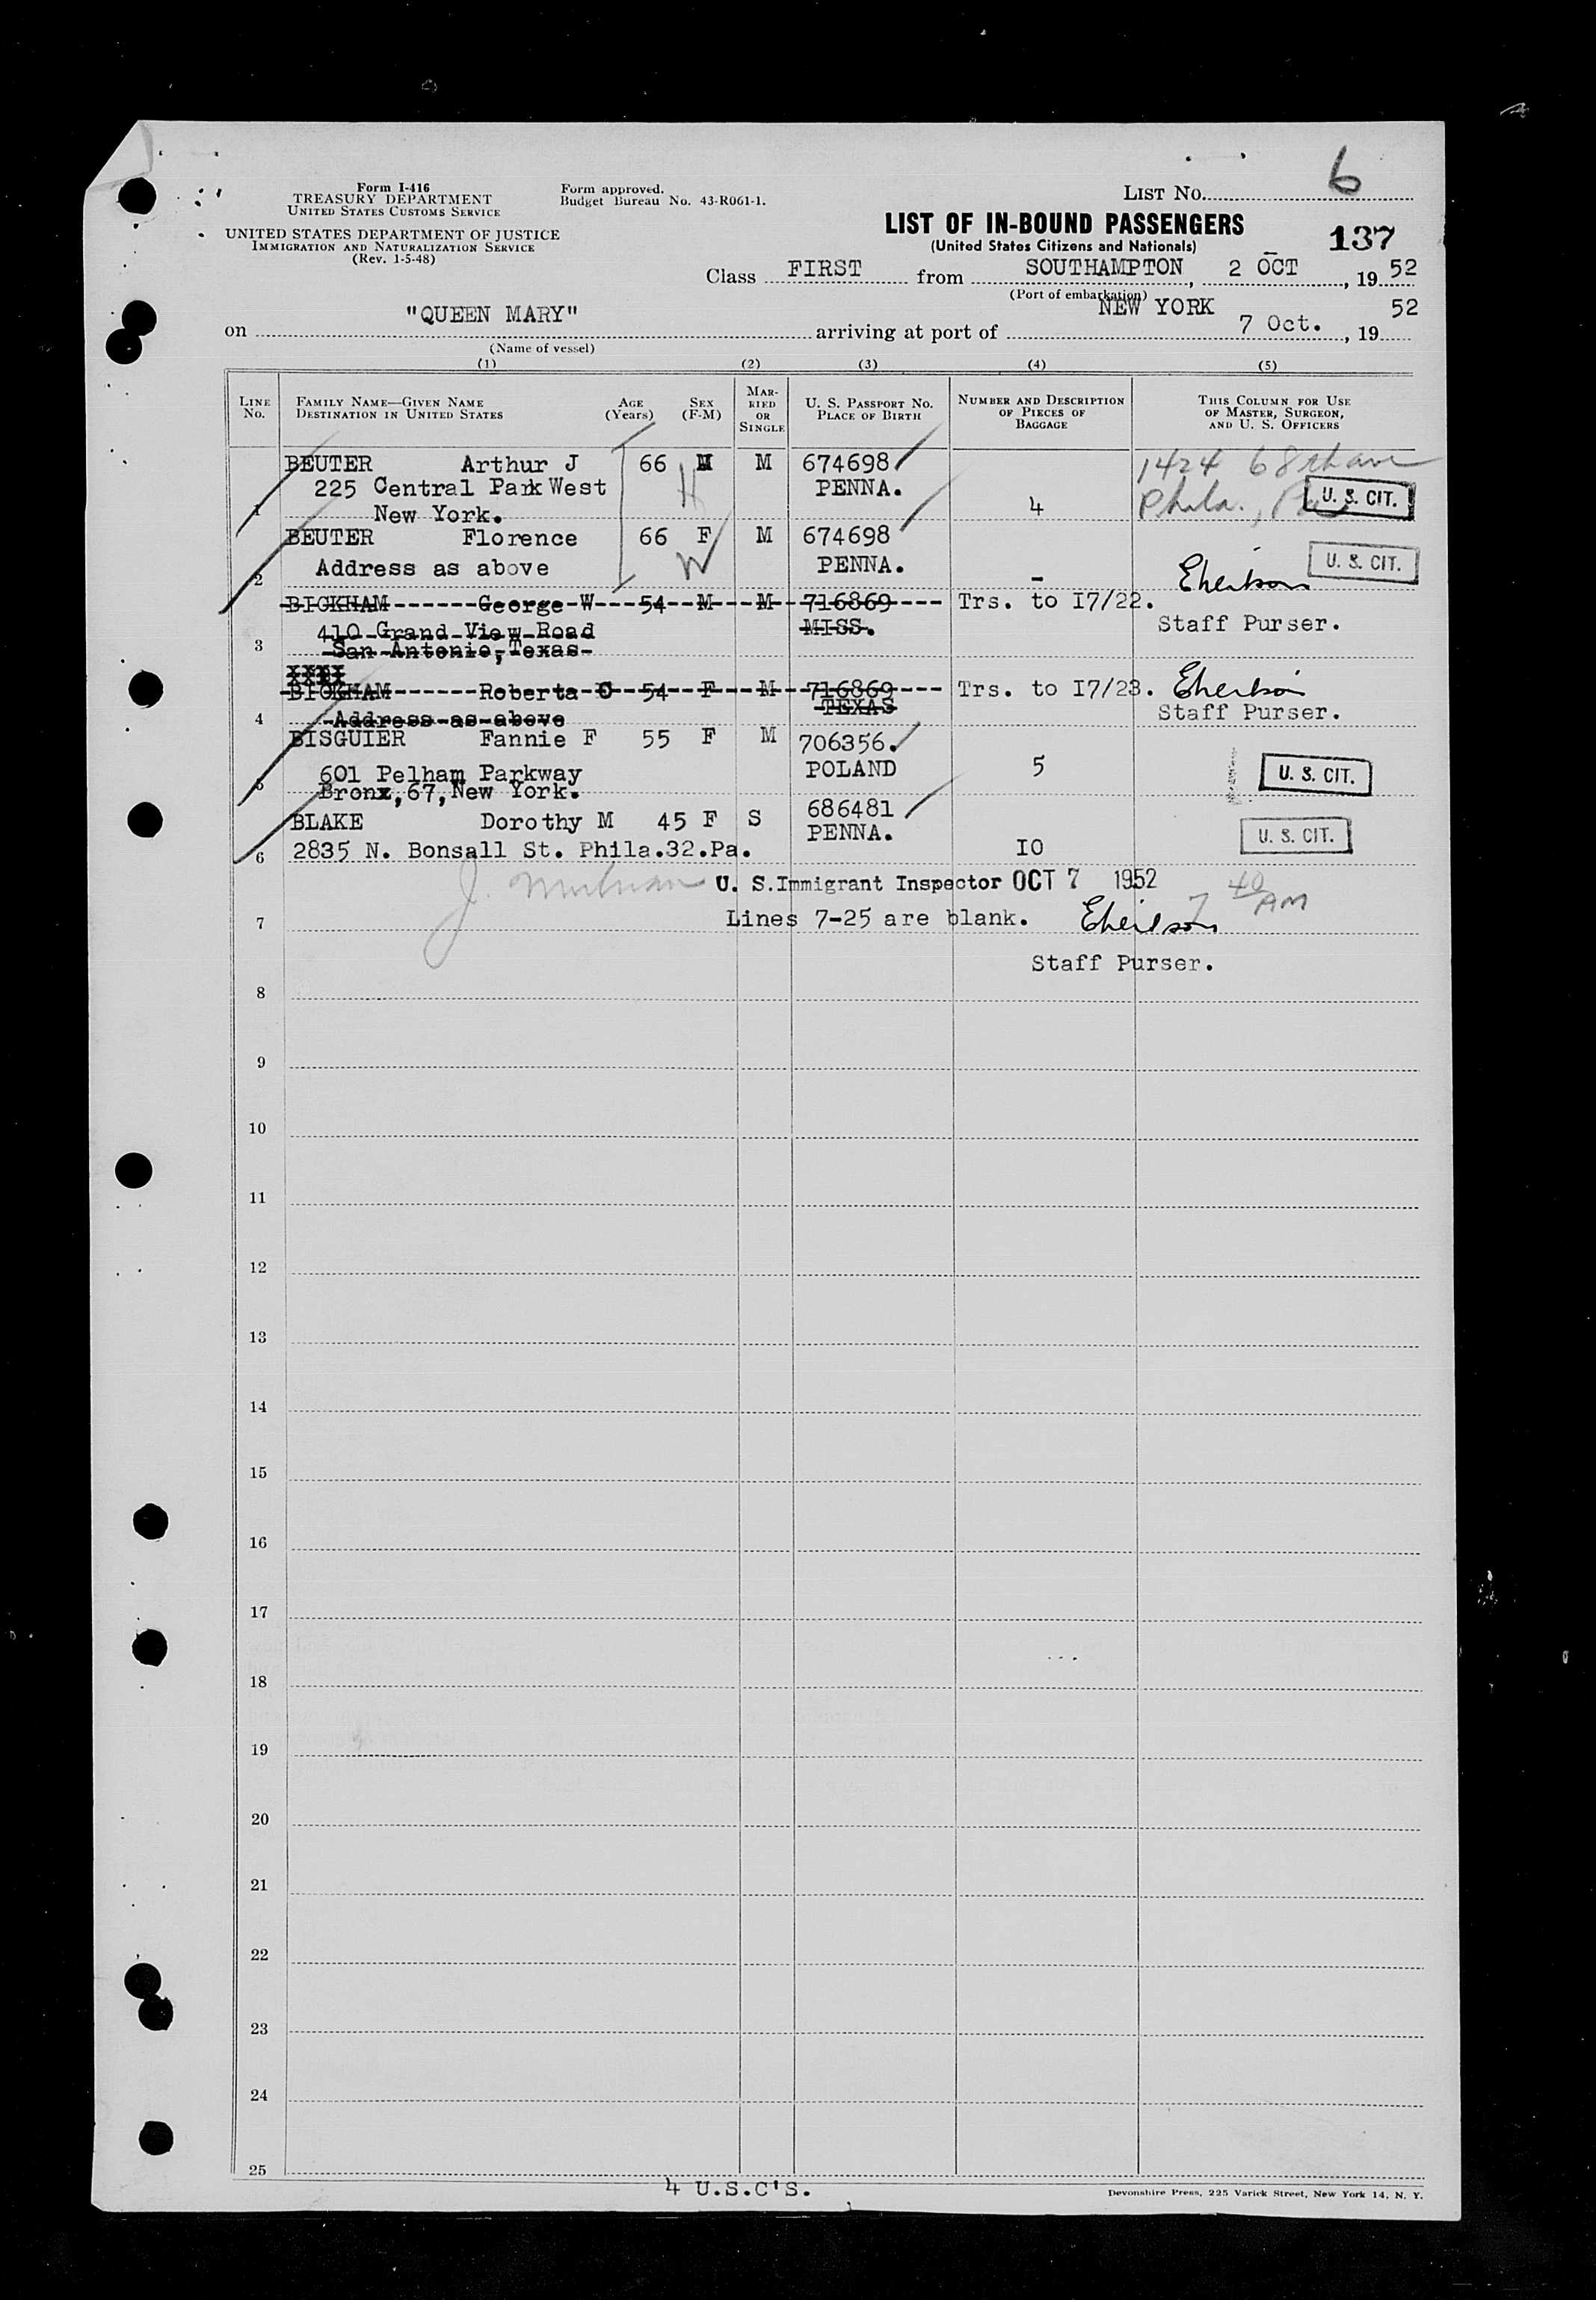 Form I-416
TREASURY DEPARTMENT
UNITED STATES CUSTOMS SERVICE
UNITED STATES DEPARTMENT OF JUSTICE
IMMIGRATION AND NATURALIZATION SERVICE
(Rev. 1-5-48)
Form approved.
Budget Bureau No. 43-R061-1.
LIST No. 6
LIST OF IN-BOUND PASSENGERS
(United States Citizens and Nationals)
137
Class FIRST from SOUTHAMPTON, 2 OCT, 1952
(Port of embarkation)
on "QUEEN MARY" arriving at port of NEW YORK 7 Oct., 1952
(Name of vessel)
(1) (2) (3) (4) (5)
LINE No. FAMILY NAME—GIVEN NAME DESTINATION IN UNITED STATES AGE (Years) SEX (F-M) MARRIED OR SINGLE U. S. PASSPORT No. PLACE OF BIRTH NUMBER AND DESCRIPTION OF PIECES OF BAGGAGE THIS COLUMN FOR USE OF MASTER, SURGEON, AND U. S. OFFICERS
BEUTER Arthur J 66 M M 674698 1424 68th ave
H
225 Central Park West PENNA. Phila., U. S. CIT.
1 New York. 4
BEUTER Florence 66 F M 674698
W
Address as above PENNA. U. S. CIT.
2 -
BICKHAM George W 54 M M 716869 Trs. to I7/22.
410 Grand View Road MISS. Staff Purser.
3 San Antonio, Texas
XXXX
BICKHAM Roberta O 54 F M 716869 Trs. to I7/23.
TEXAS Staff Purser.
4 Address as above
BISGUIER Fannie F 55 F M 706356.
601 Pelham Parkway POLAND 5 U. S. CIT.
5 Bronx,67,New York.
BLAKE Dorothy M 45 F S 686481
PENNA. U. S. CIT.
6 2835 N. Bonsall St. Phila.32.Pa. IO
U. S. Immigrant Inspector OCT 7 1952 7 40 AM
7 Lines 7-25 are blank.
Staff Purser.
8
9
10
11
12
13
14
15
16
17
18
19
20
21
22
23
24
25
4 U.S.C'S.
Devonshire Press, 225 Varick Street, New York 14, N. Y.